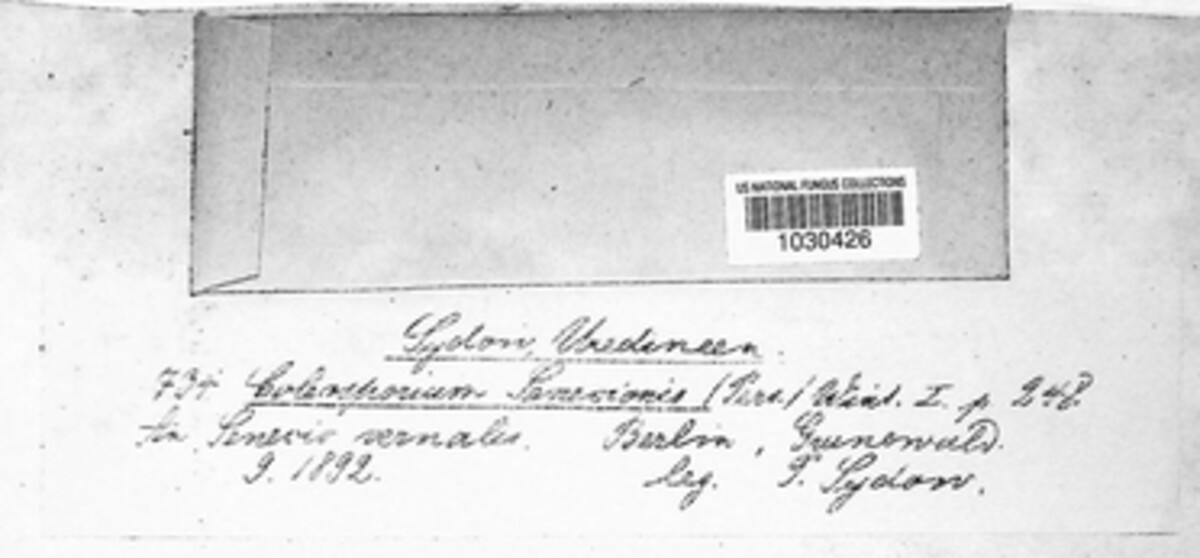 US NATIONAL FUNGUS COLLECTIONS
1030426
Sydow, Uredineen.
734 Coleosporium Senecionis (Pers.) Wint. I. p. 248.
An Senecio vernalis. Berlin, Grunewald.
9. 1892. leg. P. Sydow.